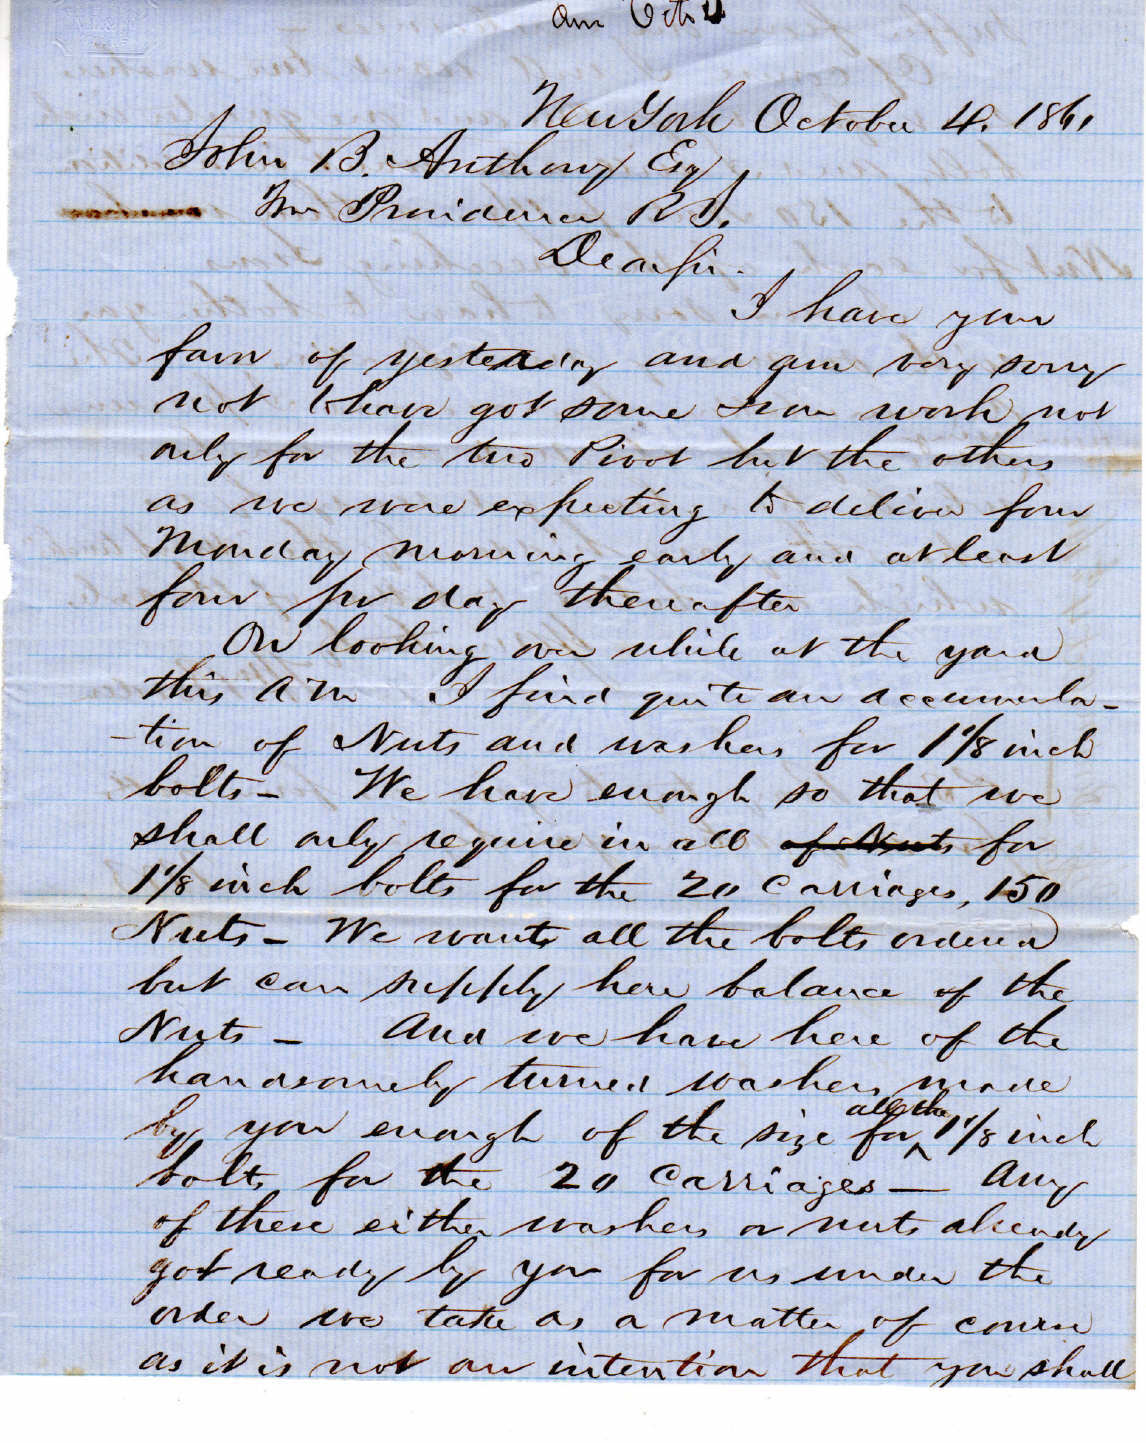 Ans Oct 4
New York October 4. 1861
John B. Anthony Esq
Providence R I.
Dear sir.
I have your
favr of yesterday and am very sorry
not to have got some Iron work not
only for the two Pivot but the others
as we were expecting to deliver four
Monday morning early and at least
four pr day thereafter
On looking over while at the yard
this A M I find quite an accumula-
-tion of Nuts and washers for 1 1/8 inch
bolts - We have enough so that we
shall only require in all of Nuts for
1 1/8 inch bolts for the 20 Carriages, 150
Nuts - We wants all the bolts ordered
but can supply here balance of the
Nuts - And we have here of the
handsomely turned washers made
by you enough of the size for all the 1 1/8 inch
bolts for the 20 Carriages - Any
of these either washers or nuts already
got ready by you for us under the
order we take as a matter of course
as it is not our intention that you shall